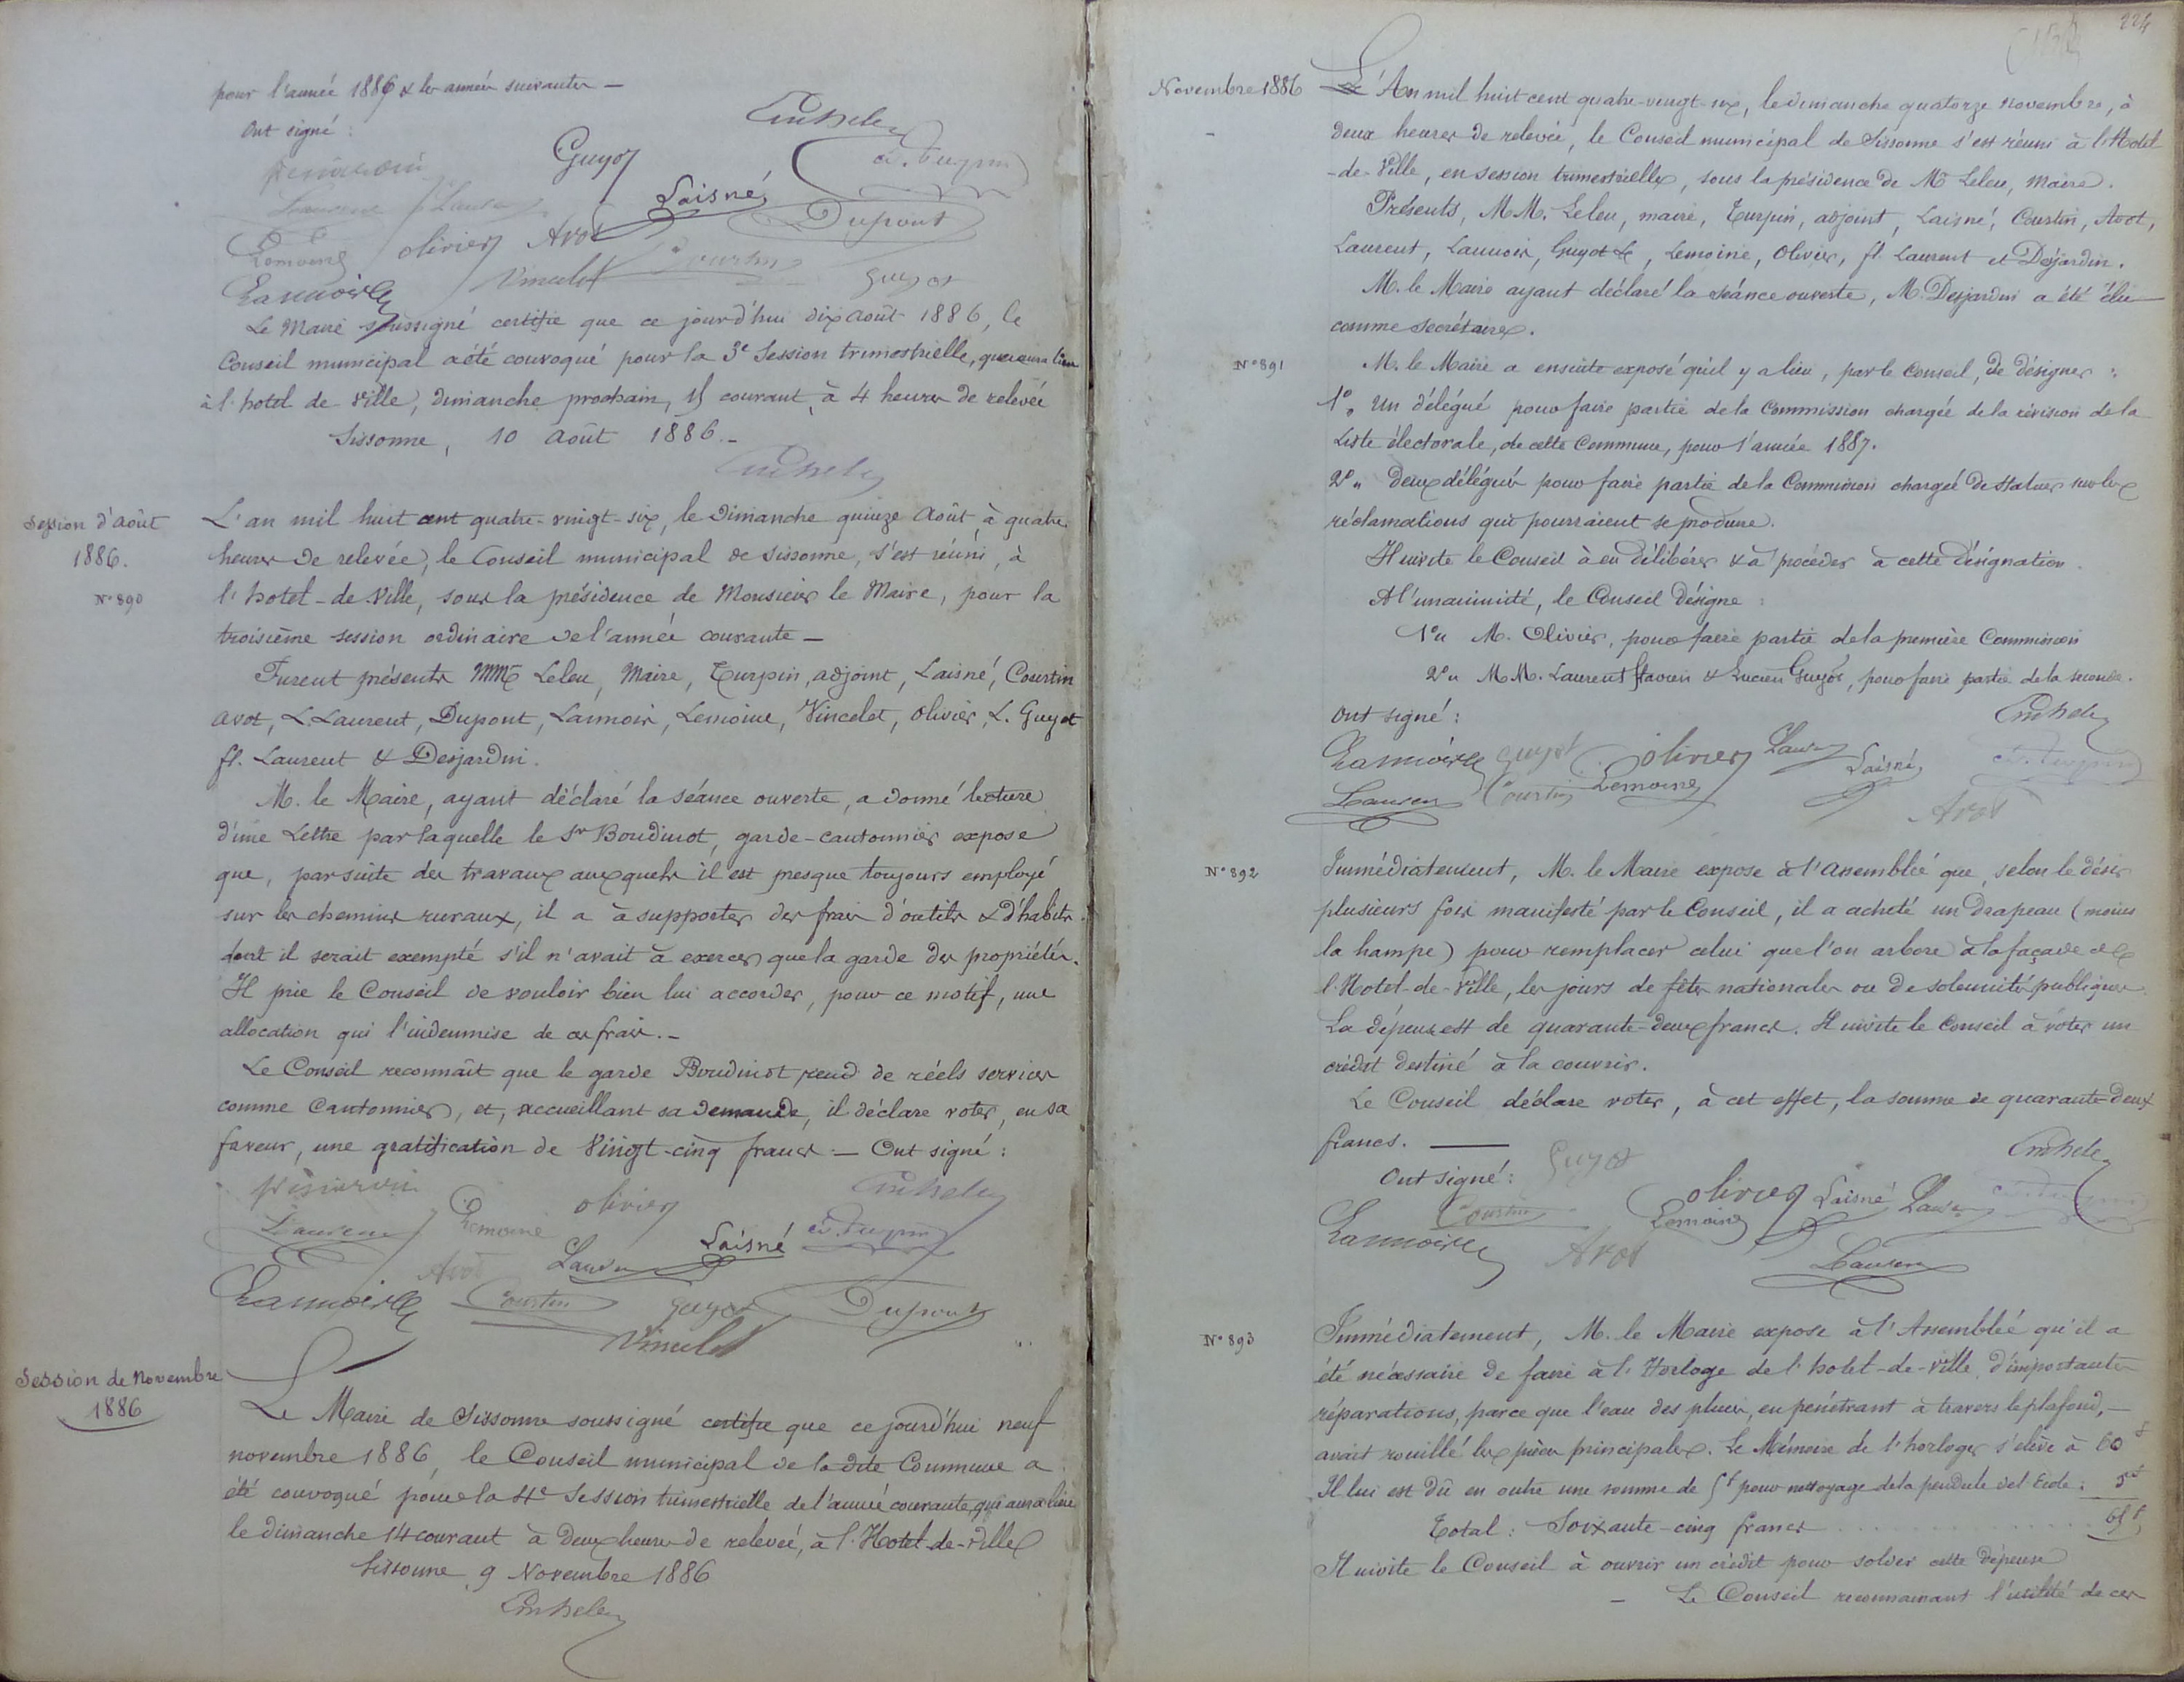 pour l'année 1886 & les années suivantes —
Ont signé :
Guyot
Laisné
Dupont
Lemoine
Olivier
Avot
Courtin
Lannoir
Vincelet
Guyot
Le Maire soussigné certifie que ce jourd'hui dix août 1886, le
Conseil municipal a été convoqué pour la 3e Session trimestrielle, qui aura lieu
à l'hotel de Ville, dimanche prochain, 15 courant, à 4 heures de relevée
Sissonne, 10 Août 1886.—
Session d'août
1886.
N° 890
L'an mil huit cent quatre-vingt-six, le Dimanche quinze Août, à quatre
heures de relevée, le Conseil municipal de Sissonne, s'est réuni, à
l'hotel-de-Ville, sous la présidence de Monsieur le Maire, pour la
troisième session ordinaire de l'année courante —
Furent présents MM Leleu, Maire, Turpin, adjoint, Laisné, Courtin
Avot, L. Laurent, Dupont, Lannoir, Lemoine, Vincelet, Olivier, L. Guyot
fl. Laurent & Desjardin.
M. le Maire, ayant déclaré la séance ouverte, a donné lecture
d'une Lettre par laquelle le Sr Boudinot, garde-cantonnier expose
que, par suite des travaux auxquels il est presque toujours employé
sur les chemins ruraux, il a à supporter des frais d'outils & d'habits
dont il serait exempté s'il n'avait à exercer que la garde des propriétés.
Il prie le Conseil de vouloir bien lui accorder, pour ce motif, une
allocation qui l'indemnise de ces frais.—
Le Conseil reconnaît que le garde Boudinot rend de réels services
comme Cantonnier, et, accueillant sa demande, il déclare voter, en sa
faveur, une gratification de Vingt-cinq francs.— Ont signé :
Olivier
Lemoine
Laurent
Laisné
Avot
Laurent
Lannoir
Courtin
Guyot
Dupont
Vincelet
Session de Novembre
1886
Le Maire de Sissonne soussigné certifie que ce jourd'hui neuf
novembre 1886, le Conseil municipal de la dite Commune a
été convoqué pour la 4e Session trimestrielle de l'année courante, qui aura lieu
le dimanche 14 courant à deux heures de relevée, à l'Hotel-de-ville
Sissonne, 9 Novembre 1886
224
Novembre 1886
L'An mil huit cent quatre-vingt-six, le dimanche quatorze novembre, à
deux heures de relevée, le Conseil municipal de Sissonne s'est réuni à l'Hotel
-de-Ville, en session trimestrielle, sous la présidence de Mr Leleu, Maire.
Présents, MM. Leleu, maire, Turpin, adjoint, Laisné, Courtin, Avot,
Laurent, Lannoir, Guyot L, Lemoine, Olivier, fl. Laurent et Desjardin.
M. le Maire ayant déclaré la séance ouverte, M. Desjardin a été élu
comme secrétaire.
N° 891
M. le Maire a ensuite exposé qu'il y a lieu, par le Conseil, de désigner :
1° " Un délégué pour faire partie de la Commission chargée de la révision de la
Liste électorale, de cette Commune, pour l'année 1887.
2° " Deux délégués pour faire partie de la Commission chargée de statuer sur les
réclamations qui pourraient se produire.
Il invite le Conseil à en délibérer & à procéder à cette désignation.
A l'unanimité, le Conseil Désigne :
1° " M. Olivier, pour faire partie de la première Commission
2° " MM. Laurent flavien & Lucien Guyot, pour faire partie de la seconde.
Ont signé :
Lannoir
Guyot
Olivier
Laurent
Laisné
Laurent
Courtin
Lemoine
Avot
N° 892
Immédiatement, M. le Maire expose à l'Assemblée que, selon le désir
plusieurs fois manifesté par le Conseil, il a acheté un Drapeau (moins
la hampe) pour remplacer celui que l'on arbore à la façade de
l'Hotel-de-Ville, les jours de fêtes nationales ou de solennités publiques.
La dépense est de quarante-deux francs. Il invite le Conseil à voter un
crédit destiné à la couvrir.
Le Conseil déclare voter, à cet effet, la somme de quarante-deux
francs. —
Ont signé :
Guyot
Courtin
Lemoine
Olivier
Laisné
Laurent
Lannoir
Avot
Laurent
N° 893
Immédiatement, M. le Maire expose à l'Assemblée qu'il a
été nécessaire de faire à l'Horloge de l'hotel-de-ville d'importantes
réparations, parce que l'eau des pluies, en pénétrant à travers le plafond, —
avait rouillé les pièces principales. Le Mémoire de l'horloger s'élève à 60 f
Il lui est dû en outre une somme de 5f pour nettoyage de la pendule de l'Ecole : 5f
Total : Soixante-cinq francs ........ 65f
Il invite le Conseil à ouvrir un crédit pour solder cette dépense
— Le Conseil reconnaissant l'utilité de ces